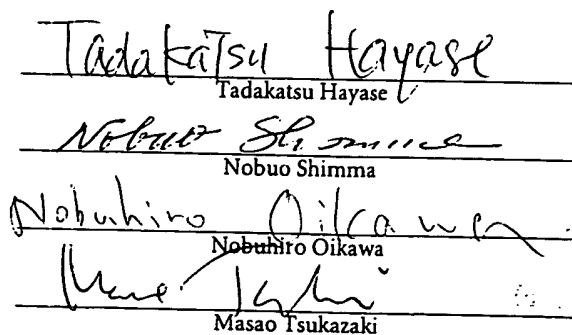 Tadakatsu Hayase
Tadakatsu Hayase
Nobuo Shimma
Nobuo Shimma
Nobuhiro Oikawa
Nobuhiro Oikawa
Masao Tsukazaki